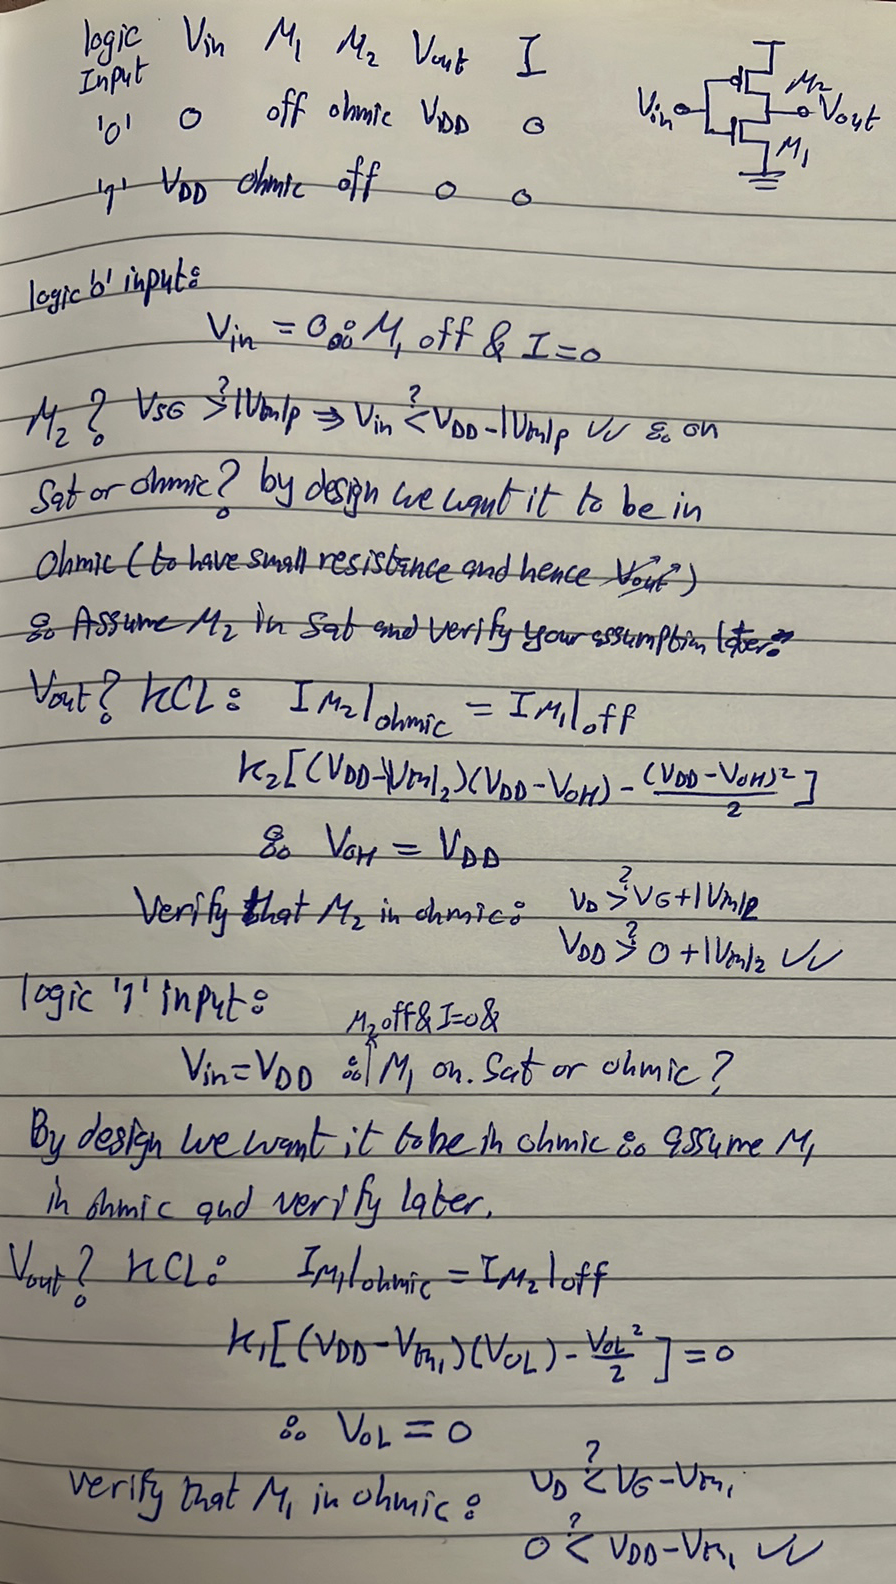 logic Vin M1 M2 Vout I
Input
'0' 0 off ohmic VDD 0
'1' VDD ohmic off 0 0
Vin M2 Vout
M1
logic '0' input:
Vin = 0 ∴ M1 off & I=0
M2? VSG >? |Vth|p ⇒ Vin <? VDD-|Vth|p ✓✓ ∴ on
Sat or ohmic? by design we want it to be in
ohmic (to have small resistance and hence Vout↗)
∴ Assume M2 in sat and verify your assumption later:
Vout? KCL: IM2|ohmic = IM1|off
K2[(VDD-|Vth|2)(VDD-VOH)-(VDD-VOH)²/2]
∴ VOH = VDD
Verify that M2 in ohmic: VD >? VG+|Vth|p
VDD >? 0+|Vth|2 ✓✓
logic '1' input:
M2 off & I=0 &
Vin=VDD ∴ M1 on. Sat or ohmic?
By design we want it to be in ohmic ∴ assume M1
in ohmic and verify later.
Vout? KCL: IM1|ohmic = IM2|off
K1[(VDD-Vth1)(VOL)-VOL²/2]=0
∴ VOL = 0
verify that M1 in ohmic: VD <? VG-Vth1
0 <? VDD-Vth1 ✓✓